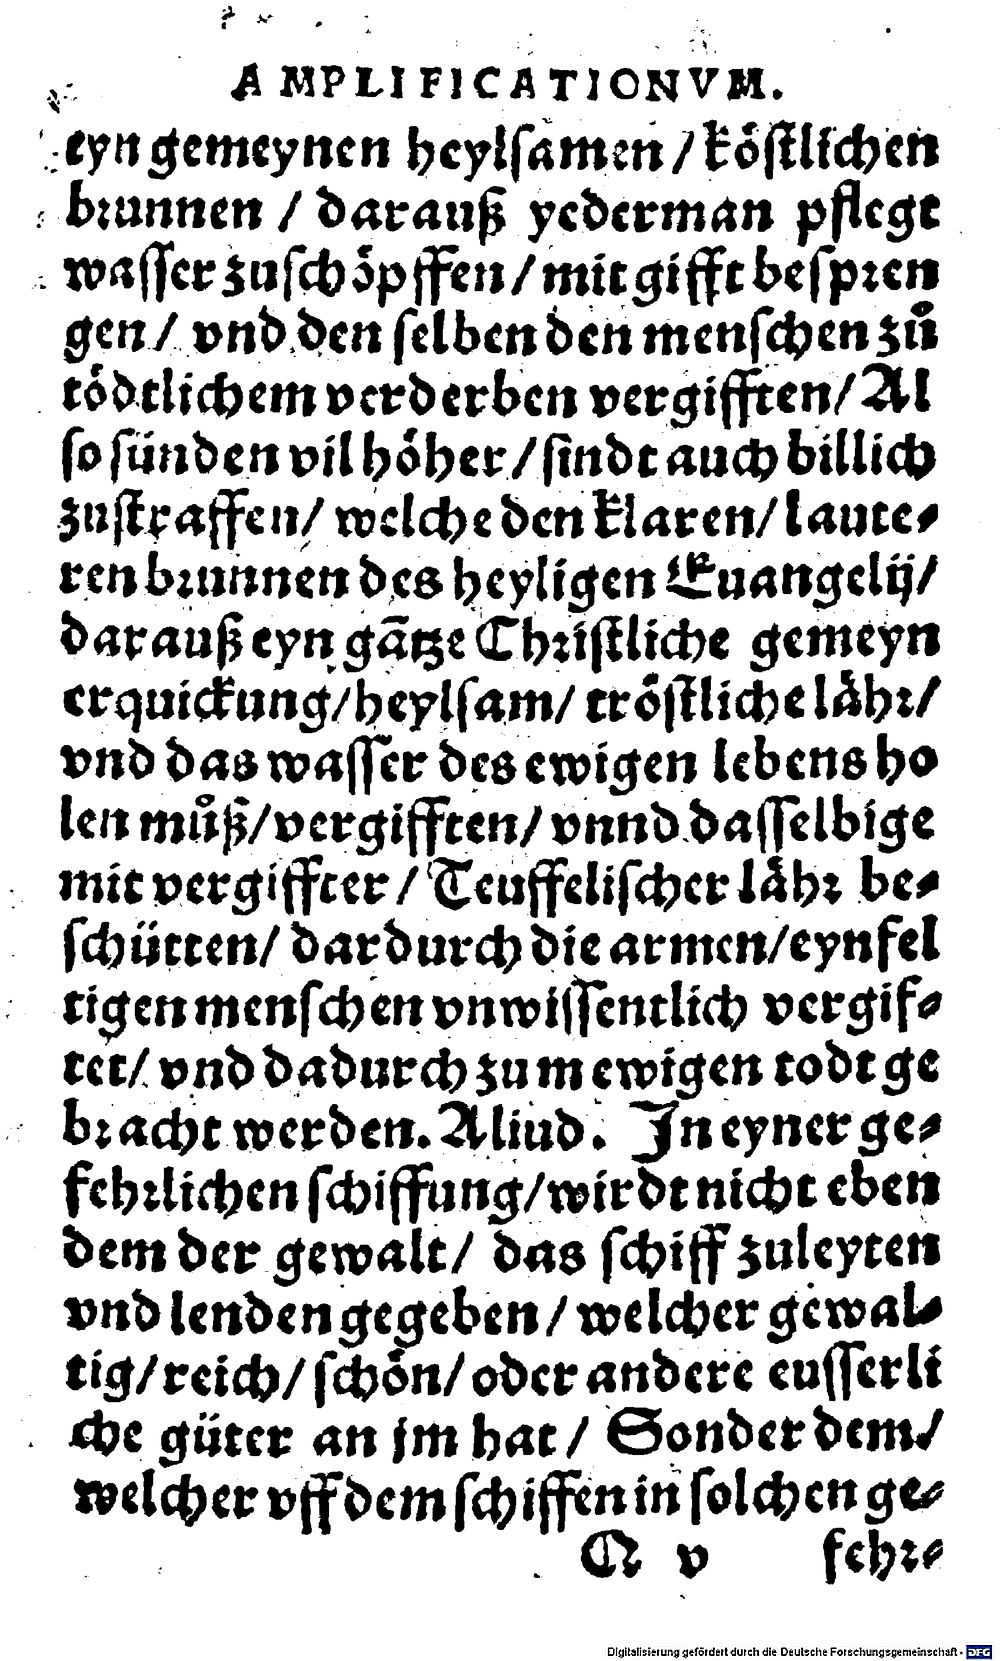 AMPLIFICATIONVM.
eyn gemeynen heylsamen / köstlichen
brunnen / darauß yederman pflegt
wasser zuschöpffen / mit gifft bespren
gen / vnd den selben den menschen zů
tödtlichem verderben vergifften / Al
so sünden vil höher / sindt auch billich
zustraffen / welche den klaren / laute⸗
ren brunnen des heyligen Euangelij /
darauß eyn gātze Christliche gemeyn
erquickung / heylsam / tröstliche lähr /
vnd das wasser des ewigen lebens ho
len můß / vergifften / vnnd dasselbige
mit vergiffter / Teuffelischer lähr be⸗
schütten / dardurch die armen / eynfel
tigen menschen vnwissentlich vergif⸗
tet / vnd dadurch zum ewigen todt ge
bracht werden. Aliud. In eyner ge⸗
fehrlichen schiffung / wirdt nicht eben
dem der gewalt / das schiff zuleyten
vnd lenden gegeben / welcher gewal⸗
tig / reich / schön / oder andere eusserli
che güter an jm hat / Sonder dem /
welcher vff dem schiffen in solchen ge⸗
Q v fehr⸗
Digitalisierung gefördert durch die Deutsche Forschungsgemeinschaft - DFG